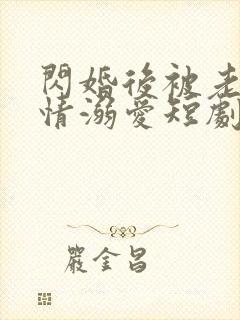 閃婚後被老
情溺愛短劇
嚴金昌